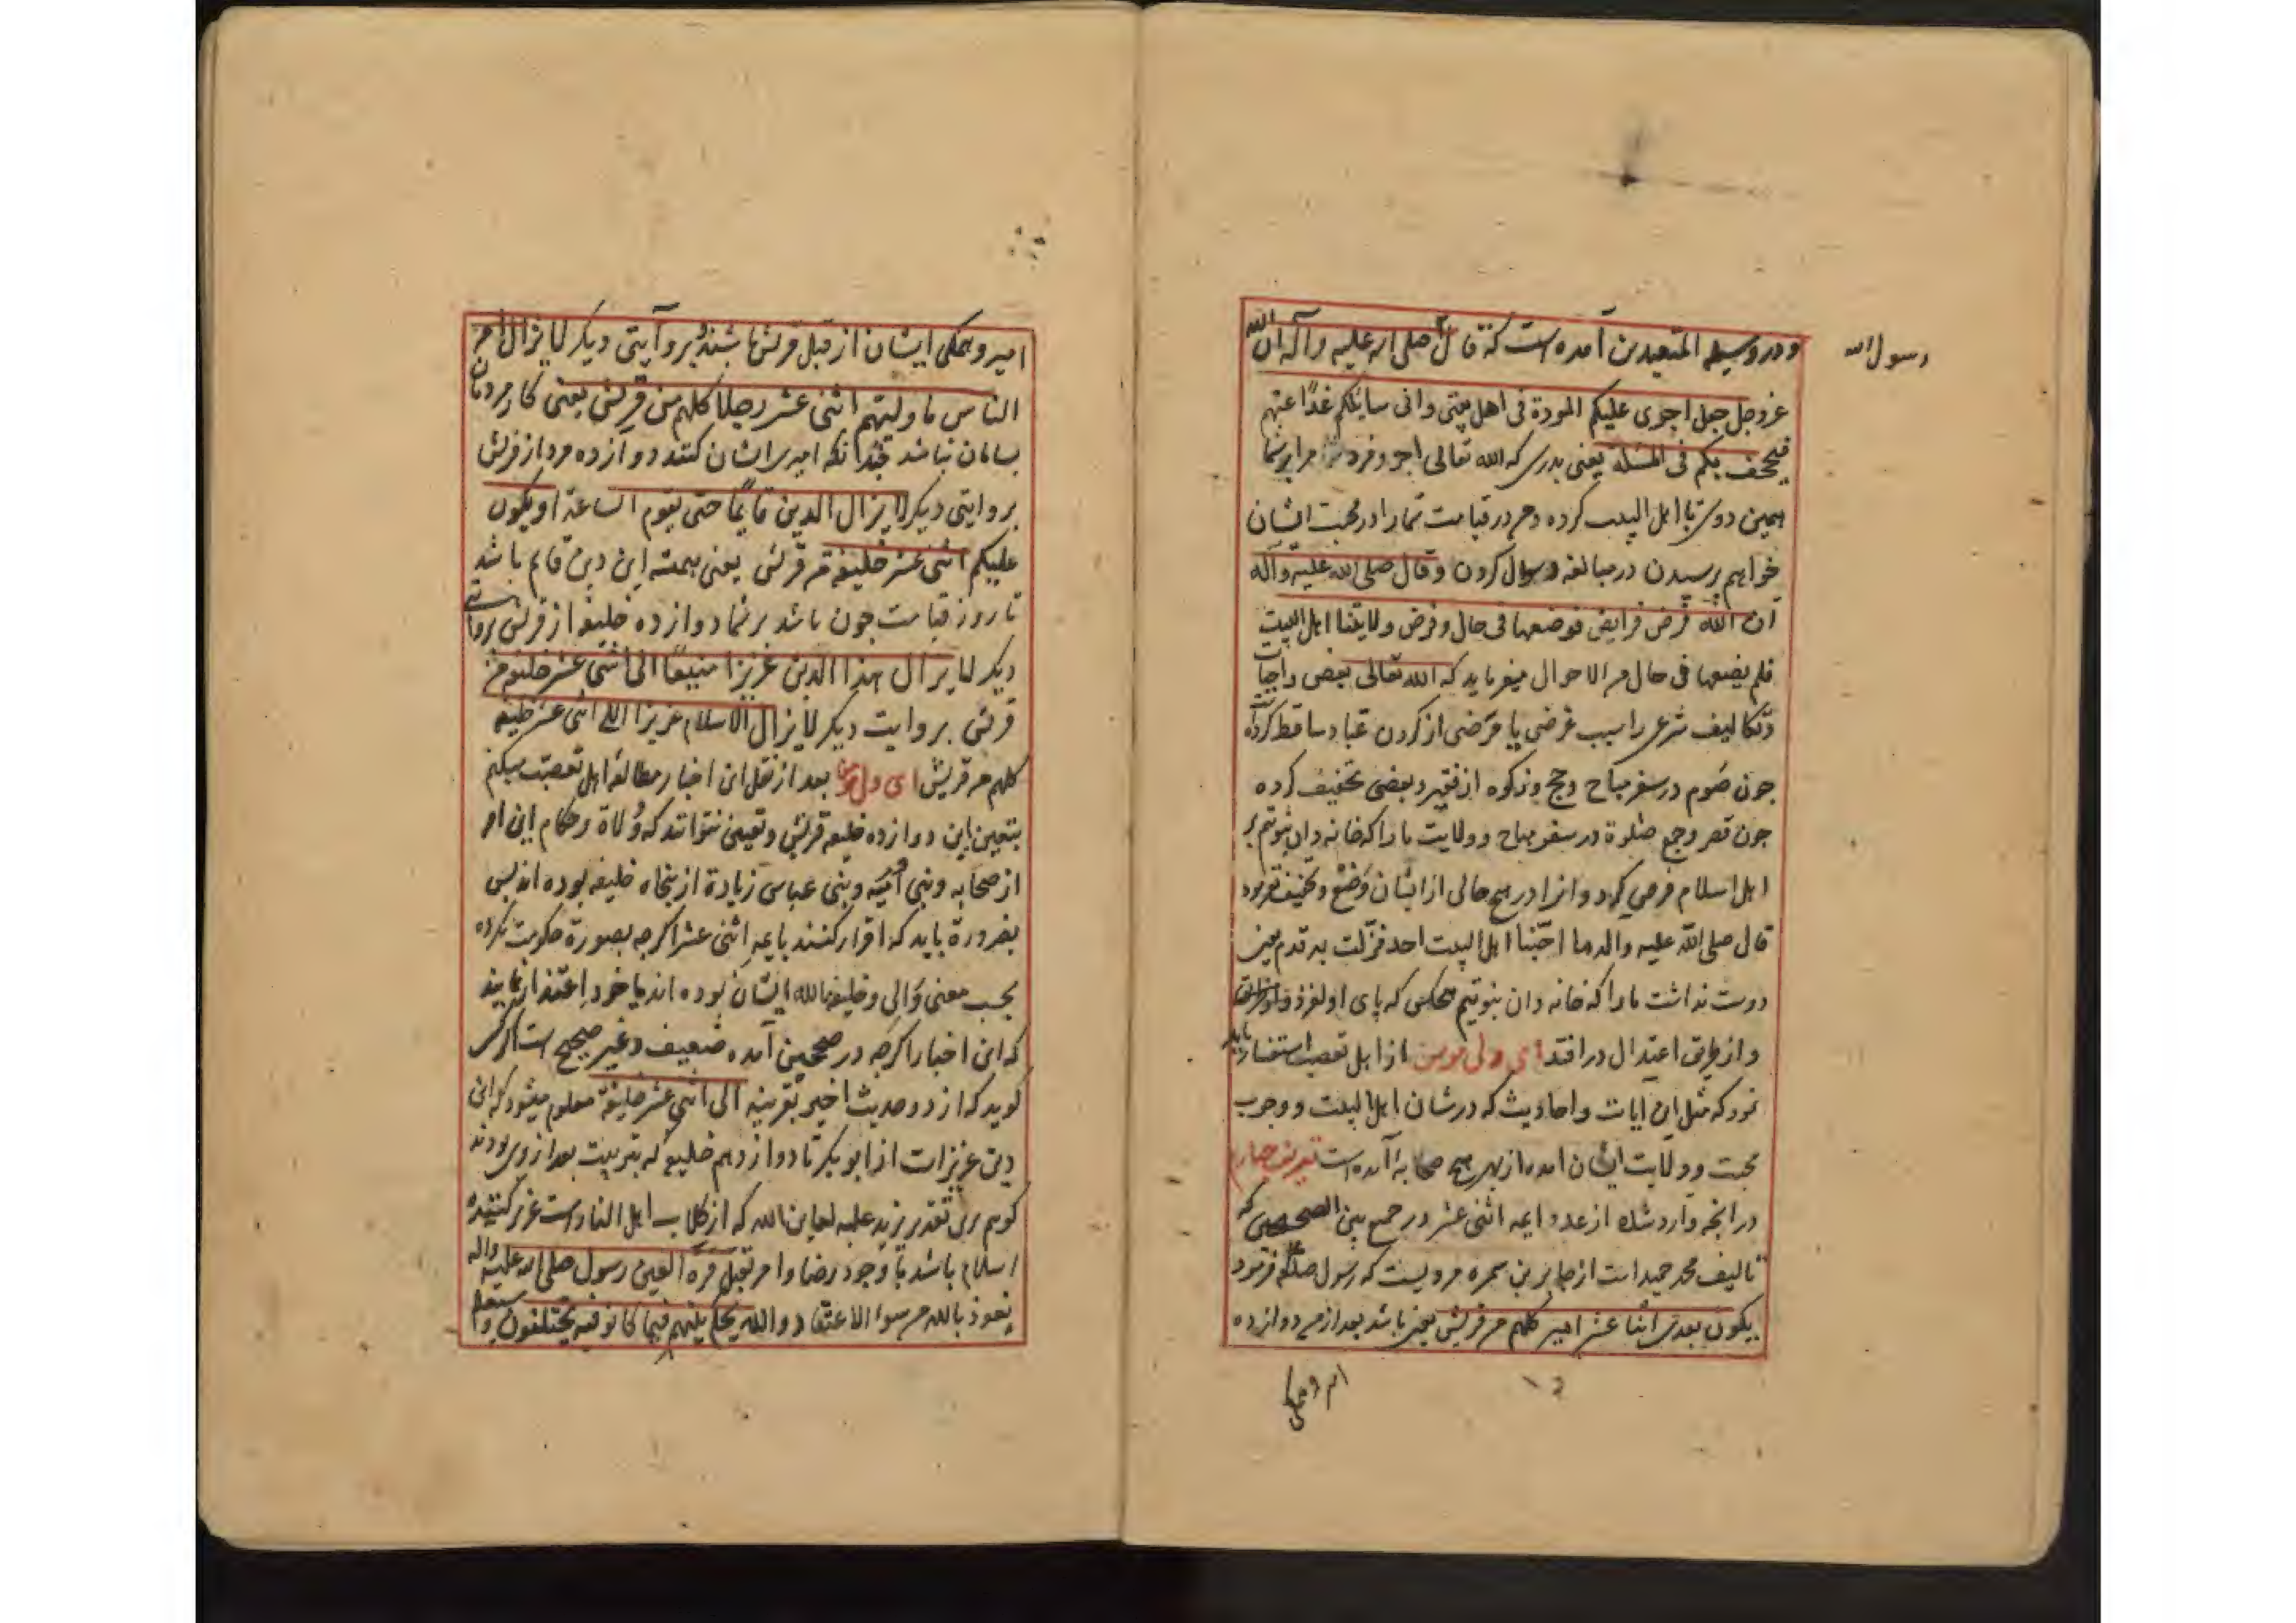 و در وسیلة المتعبدین آمده است که قال صلی الله علیه و آله ان الله
رسول الله
عز و جل جعل اجری علیکم المودة فی اهل بیتی و انی سایلکم غدًا عنهم
فیجحف بکم فی المسئلة یعنی بدرستی که الله تعالی اجر و فرد مرا بر شما
همین دوستی با اهل البیت کرده و من در قیامت شما را در محبت ایشان
خواهم پرسیدن در مبالغه و سوال کردن و قال صلی الله علیه و آله
ان الله فرض فرایض فوضعها فی حال و فرض ولایتنا اهل البیت
فلم یضعها فی حال من الاحوال میفرماید که الله تعالی بعضی واجبات
و تکالیف شرعی را سبب غرضی یا مرضی از کردن عباد ساقط کرده
چون صوم در سفر مباح و حج و زکوه از فقیر و بعضی تخفیف کرده
چون قصر و جمع صلوة در سفر مباح و ولایت ما را که خانه دان نبوتیم بر
اهل اسلام فرض کرد و انرا در هیچ حالی از ایشان وضع و تخفیف نفرمود
قال صلی الله علیه و اله ما احبنا اهل البیت احد فزلت به قدم یعنی
دوست نداشت ما را که خانه دان نبوتیم هیچکس که پای او لغزد
و از طریق اعتدال در افتد ای ولی مومن از اهل تعصب استفسار باید
نمود که مثل این ایات و احادیث که در شان اهل البیت و وجوب
محبت و ولایت ایشان امده از بهر هیچ صحابه آمده است تعریف چهارم
در انچه وارد شده از عدد ایمه اثنی عشر در جمع بین الصحیحین که
تالیف محمد حمید است از جابر بن سمره مرویست که رسول صلعم فرمود
یکون بعدی اثنا عشر امیر کلهم من قریش یعنی باشد بعد از من دوازده
امیر و همکی
امیر و همکی ایشان از قبل قریش باشند و بر وآیتی دیکر لا یزال امر
الناس ما ولیتهم اثنی عشر رجلا کلهم من قریش یعنی کار مردمان
بسامان نباشد چندانکه امیری ایشان کنند دوازده مرد از قریش
بروایتی دیکر لا یزال الدین قایمًا حتی یقوم الساعة او یکون
علیکم اثنی عشر خلیفة من قریش یعنی همیشه این دین قایم باشد
تا روز قیامت چون باشد بر شما دوازده خلیفه از قریش بروایتی
دیکر لا یزال هذا الدین عزیزا منیعًا الی اثنی عشر خلیفه من
قریش بروایت دیکر لا یزال الاسلام عزیزا الی اثنی عشر خلیفه
کلهم من قریش ای ولی مومن بعد از نقل این اخبار مطالبه اهل تعصب میکنم
بتعیین این دوازده خلیفه قریش و تعیین نتوانند که ولاة و حکام این امر
از صحابه و بنی امیه و بنی عباس زیادة از پنجاه خلیفه بوده اند پس
بضرورة باید که اقرار کنند بایمه اثنی عشر اکرچه بصورة حکومت نکرده
بحسب معنی والی و خلیفه الله ایشان بوده اند یا خود اعتذار نمایند
که این اخبار اکرچه در صحیحین آمده ضعیف و غیر صحیح است اگر کسی
کوید که از دو حدیث اخیر بقرینه الی اثنی عشر خلیفة معلوم میشود که این
دین عزیز است از ابو بکر تا دوازدهم خلیفه که بترتیب بعد از وی بودند
کویم برین تقدیر یزید علیه لعاین الله که از کلاب اهل النار است عزیز کننده
اسلام باشد با وجود رضا و امر بقتل قرة العین رسول صلی الله علیه و اله
نعوذ بالله من سوء الاعتقاد والله یحکم بینهم فیما کانو فیه یختلفون